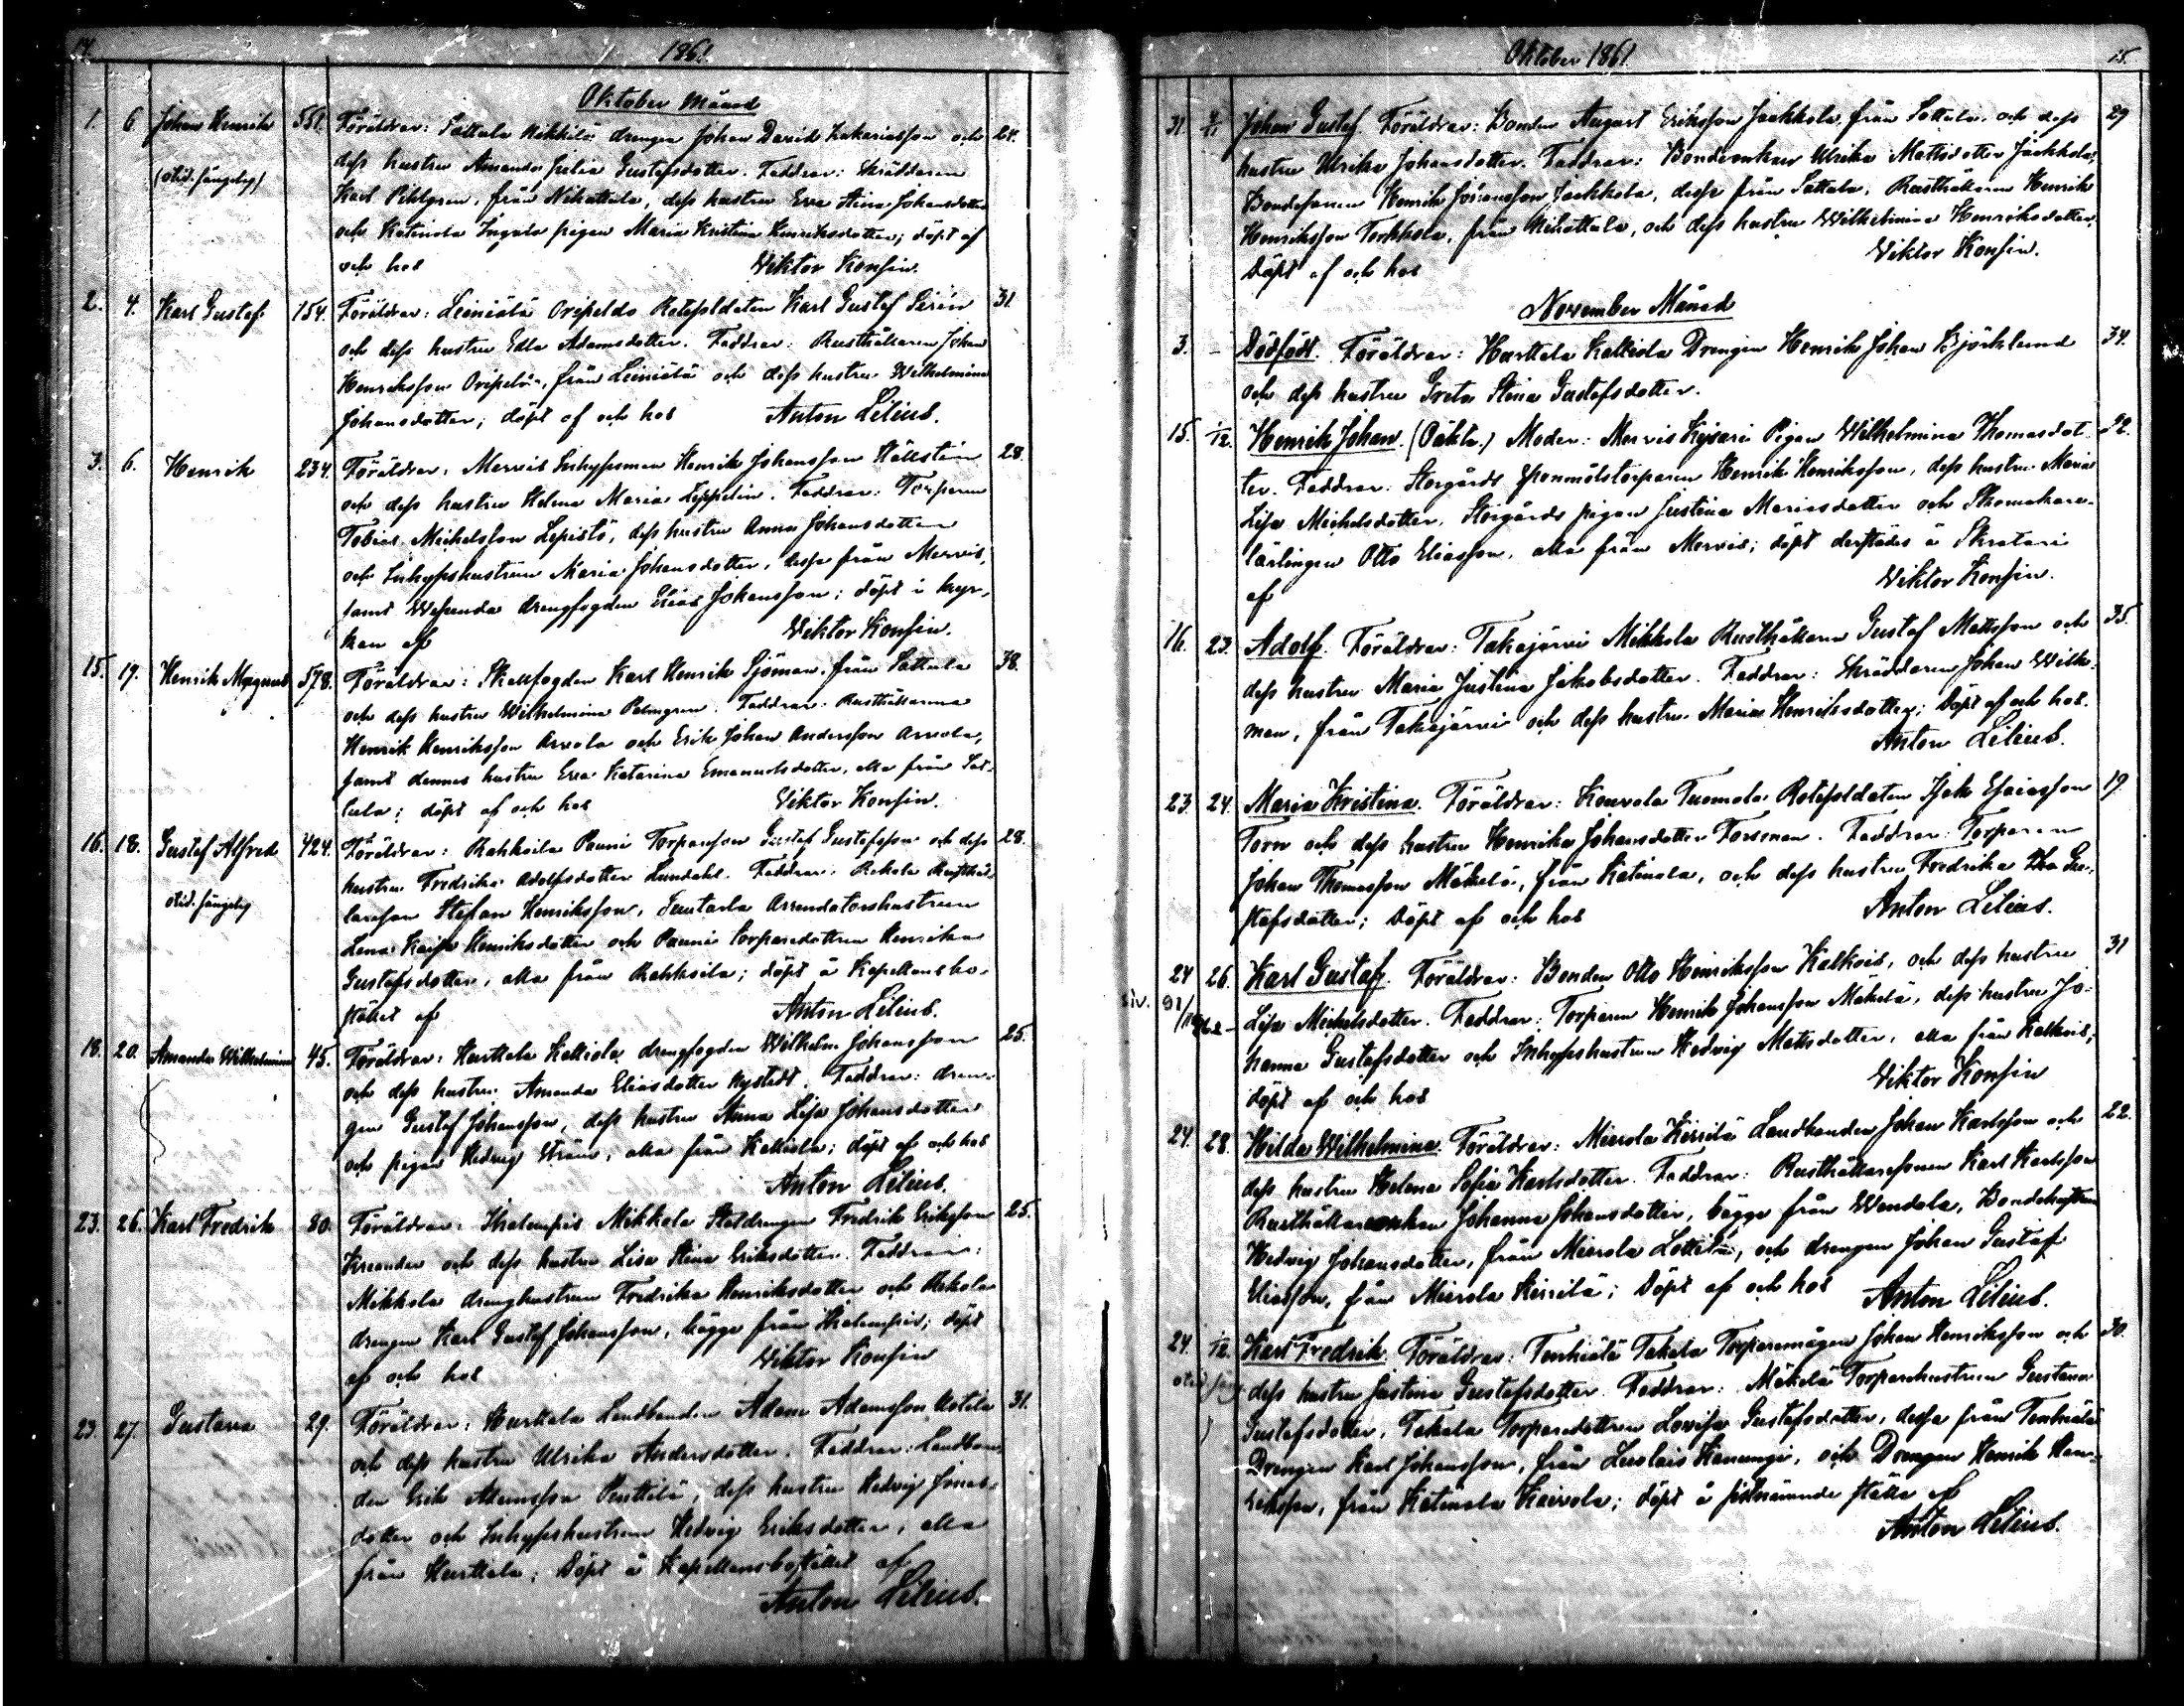 14. 1861.
Oktober Månad
1. 6 Johan Henrik 551. Föräldrar: Sattula Nikkilä drengen Johan David Zakariasson och 24.
(otid. sängelag) dess hustru Amanda Julia Gustafsdotter. Faddrar: Skräddaren
Karl Pihlgren, från Nihattula, dess hustru Eva Stina Johansdotter
och Katinala Ingala pigan Maria Kristina Henriksdotter; döpt af
och hos Viktor Konsin.
2. 4. Karl Gustaf 154. Föräldrar: Leiniälä Oripeldo Rotesoldaten Karl Gustaf Seren 31.
och dess hustru Edla Adamsdotter. Faddrar: Rusthållaren Johan
Henriksson Oripelto, från Leiniälä och dess hustru Wilhelmina
Johansdotter; döpt af och hos Anton Lilius.
3. 6. Henrik 234. Föräldrar: Mervis Inhysesman Henrik Johansson Hällsten 28.
och dess hustru Helena Maria Zeppelin. Faddrar: Torparen
Tobias Michelsson Lepistö, dess hustru Anna Johansdotter
och Inhyseshustrun Maria Johansdotter, desse från Mervis,
samt Wesunda drengfogden Elias Johansson; döpt i kyr-
kan af Viktor Konsin.
15. 17. Henrik Magnus 578. Föräldrar: Skallfogden Karl Henrik Sjöman, från Sattula 38.
och dess hustru Wilhelmina Palmgren. Faddrar: Rusthållarena
Henrik Henriksson Arvola och Erik Johan Andersson Arvola,
samt dennes hustru Eva Katarina Emanuelsdotter, alla från Sat-
tula; döpt af och hos Viktor Konsin.
16. 18. Gustaf Alfred 424. Föräldrar: Rahkoila Pauni Torparson Gustaf Gustafsson och dess 28.
otid. sängelag hustru Fredrika Adolfsdotter Lundahl. Faddrar: Rekola Rusthål-
lareson Stefan Henriksson, Tuutarla Arrendatorshustrun
Lena Kaisa Henriksdotter och Pauni torparedottren Henrika
Gustafsdotter, alla från Rahkoila; döpt å Kapellansbo-
stället af Anton Lilius.
18. 20. Amanda Wilhelmina 45. Föräldrar: Hurttala Kalliola drengfogden Wilhelm Johansson 25.
och dess hustru Amanda Eliasdotter Nystedt. Faddrar: dren-
gen Gustaf Johansson, dess hustru Anna Lisa Johansdotter
och pigan Hedvig Ström, alla från Kalliola; döpt af och hos
Anton Lilius.
23. 26. Karl Fredrik 80. Föräldrar: Ihalempis Mikkola Staldrengen Fredrik Eriksson 25.
Kreander och dess hustru Lisa Stina Eriksdotter. Faddrar:
Mikkola drenghustrun Fredrika Henriksdotter och Rekola
drengen Karl Gustaf Johansson, bägge från Ihalempis; döpt
af och hos Viktor Konsin
23. 27. Gustava 29. Föräldrar: Hurttala Landbonden Adam Adamsson Uotila 31.
och dess hustru Ulrika Andersdotter. Faddrar: Landbon-
den Erik Adamsson Penttilä, dess hustru Hedvig Jonas-
dotter och Inhyseshustrun Hedvig Eriksdotter, alla
från Hurttala; Döpt å Kapellansbostället af
Anton Lilius.
Oktober 1861 15.
31. Johan Gustaf. Föräldrar: Bonden August Eriksson Jaakkola, från Sattula, och dess 29
hustru Ulrika Johansdotter. Faddrar: Bondeenkan Ulrika Mattsdotter Jaakkola,
Bondesonen Henrik Johansson Jaakkola, desse från Sattula, Rusthållaren Henrik
Henriksson Torkkola, från Nihattula, och dess hustru Wilhelmina Henriksdotter;
Döpt af och hos Viktor Konsin.
November Månad
3. – Dödfödt. Föräldrar: Hurttala Kalliola Drengen Henrik Johan Björklund 34.
och dess hustru Greta Stina Gustafsdotter.
15. 1/12. Henrik Johan. (Oäkta.) Moder: Mervis Kysari Pigan Wilhelmina Thomasdot- 32.
ter. Faddrar: Storgårds Sponmålstorparen Henrik Henriksson, dess hustru Maria
Lisa Michelsdotter, Storgårds pigan Justina Mariasdotter och Skomakare-
lärlingen Otto Eliasson, alla från Mervis; döpt derstädes å Skratari
af Viktor Konsin.
16. 23. Adolf. Föräldrar: Takajärvi Mikkola Rusthållaren Gustaf Mattsson och 35.
dess hustru Maria Justina Jakobsdotter. Faddrar: Skräddaren Johan Wilk-
man, från Takajärvi och dess hustru Maria Henriksdotter; Döpt af och hos.
Anton Lilius.
23. 24. Maria Kristina. Föräldrar: Kouvola Tuomola Rotesoldaten Isak Esaiasson 19.
Torn och dess hustru Henrika Johansdotter Forsman. Faddrar: Torparen
Johan Thomasson Mäkelä, från Katinala, och dess hustru Fredrika Gu-
stafsdotter; Döpt af och hos Anton Lilius.
24 26. Karl Gustaf. Föräldrar: Bonden Otto Henriksson Kalkois, och dess hustru 31
Lisa Michelsdotter. Faddrar: Torparen Henrik Johansson Mäkelä, dess hustru Jo-
hanna Gustafsdotter och Inhyseshustrun Hedvig Mattsdotter, alla från Kalkois;
döpt af och hos Viktor Konsin
24. 28. Hilda Wilhelmina. Föräldrar: Mierola Kirrilä Landbonden Johan Karlsson och 22.
dess hustru Helena Sofia Karlsdotter. Faddrar: Rusthållaresonen Karl Karlsson
Rusthållareenkan Johanna Johansdotter, bägge från Wendola, Bondehustrun
Hedvig Johansdotter, från Mierola Lottila, och drengen Johan Gustaf
Eliasson, från Mierola Kirrilä; Döpt af och hos Anton Lilius.
24. 1/12. Karl Fredrik. Föräldrar: Tenhiälä Takala Torparemågen Johan Henriksson och 30.
dess hustru Justina Gustafsdotter. Faddrar: Mäkelä Torparehustrun Gustava
Gustafsdotter, Takala Torparedottren Lovisa Gustafsdotter, dessa från Tenhiälä
Drengen Karl Johansson, från Luolais Kanungi, och Drengen Henrik Hen-
riksson, från Katinala Kairola; döpt å sistnämnde ställe af
Anton Lilius.